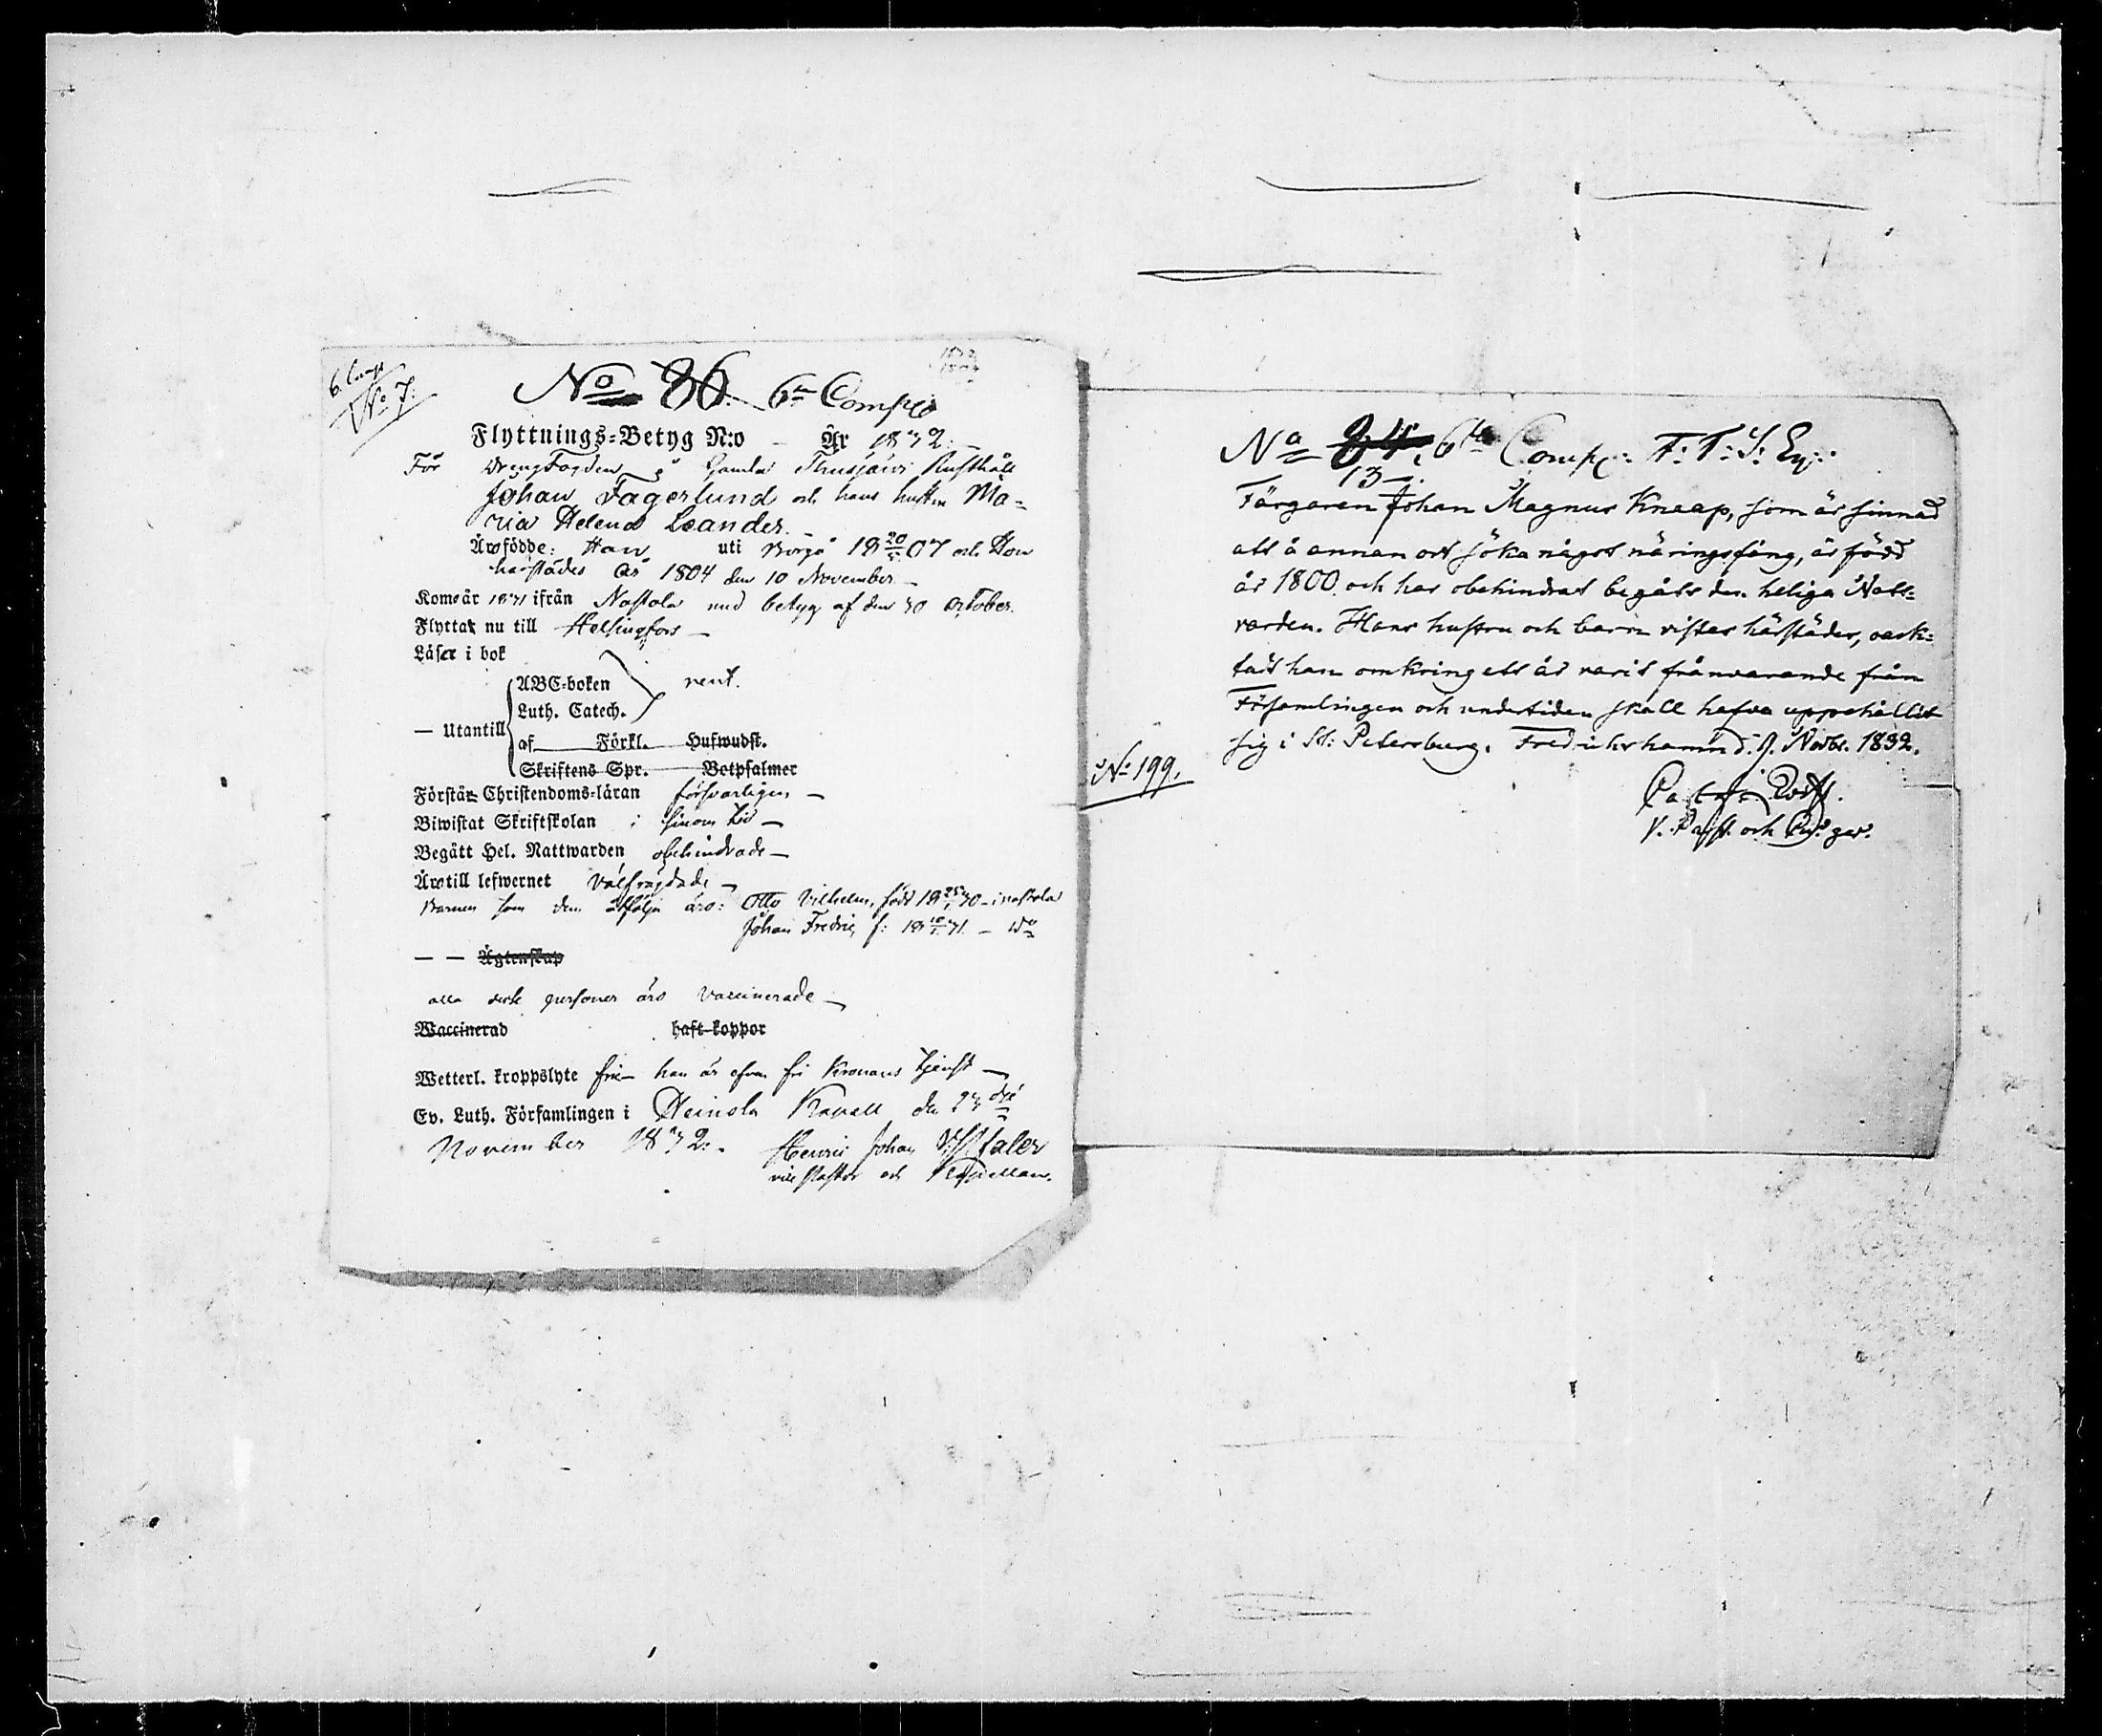 6 Comp
No 7.
No 86. 6te Comp
Flyttnings-Betyg N:o — År 1832.
För DrengFogden å Gamla Thusjärvi Rusthåll
Johan Fagerlund och hans hustru Ma-
ria Helena Leander.
Äro födde: Han uti Borgå 18 20/5 07 och Hon
härstädes år 1804 den 10 November —
Komo år 1831 ifrån Nastola med betyg af den 30 October.
Flytta nu till Helsingfors —
Läser i bok
ABC-boken
rent.
Luth. Catech.
— Utantill
af Förkl. Hufwudst.
Skriftens Spr. Botpsalmer
Förstå Christendoms-läran försvarligen —
Biwistat Skriftskolan i sinom tid —
Begått Hel. Nattwarden obehindrade —
Äro till lefwernet välfrägdade —
Barnen som dem åtfölja äro: Otto Vilhelm, född 18 25/1 30 — i Nastola
Johan Fredric, f: 18 10/7 31. — Do
— — Ägtenskap
alla desse personer äro vaccinerade —
Waccinerad haft koppor
Wetterl. kroppslyte fri — han är ofvan fri Kronans tjenst —
Ev. Luth. Församlingen i Heinola Kapell den 23dje
November 1832. Henric Johan
vice Pastor och Kapellan.
No 84. 6te Comp: F: F: S: Ex:
13
Färgaren Johan Magnus Knaap, som är sinnad
att å annan ort söka något näringsfång, är född
år 1800. och har obehindrat begått den heliga Natt-
varden. Hans hustru och barn vistas härstädes, oack-
tadt han omkring ett år varit frånvarande från
Församlingen och undertiden skall hafva uppehållit
sig i St: Petersburg. Fredrikshamn d. 9. Novbr. 1832.
No 199.
V. Past. och